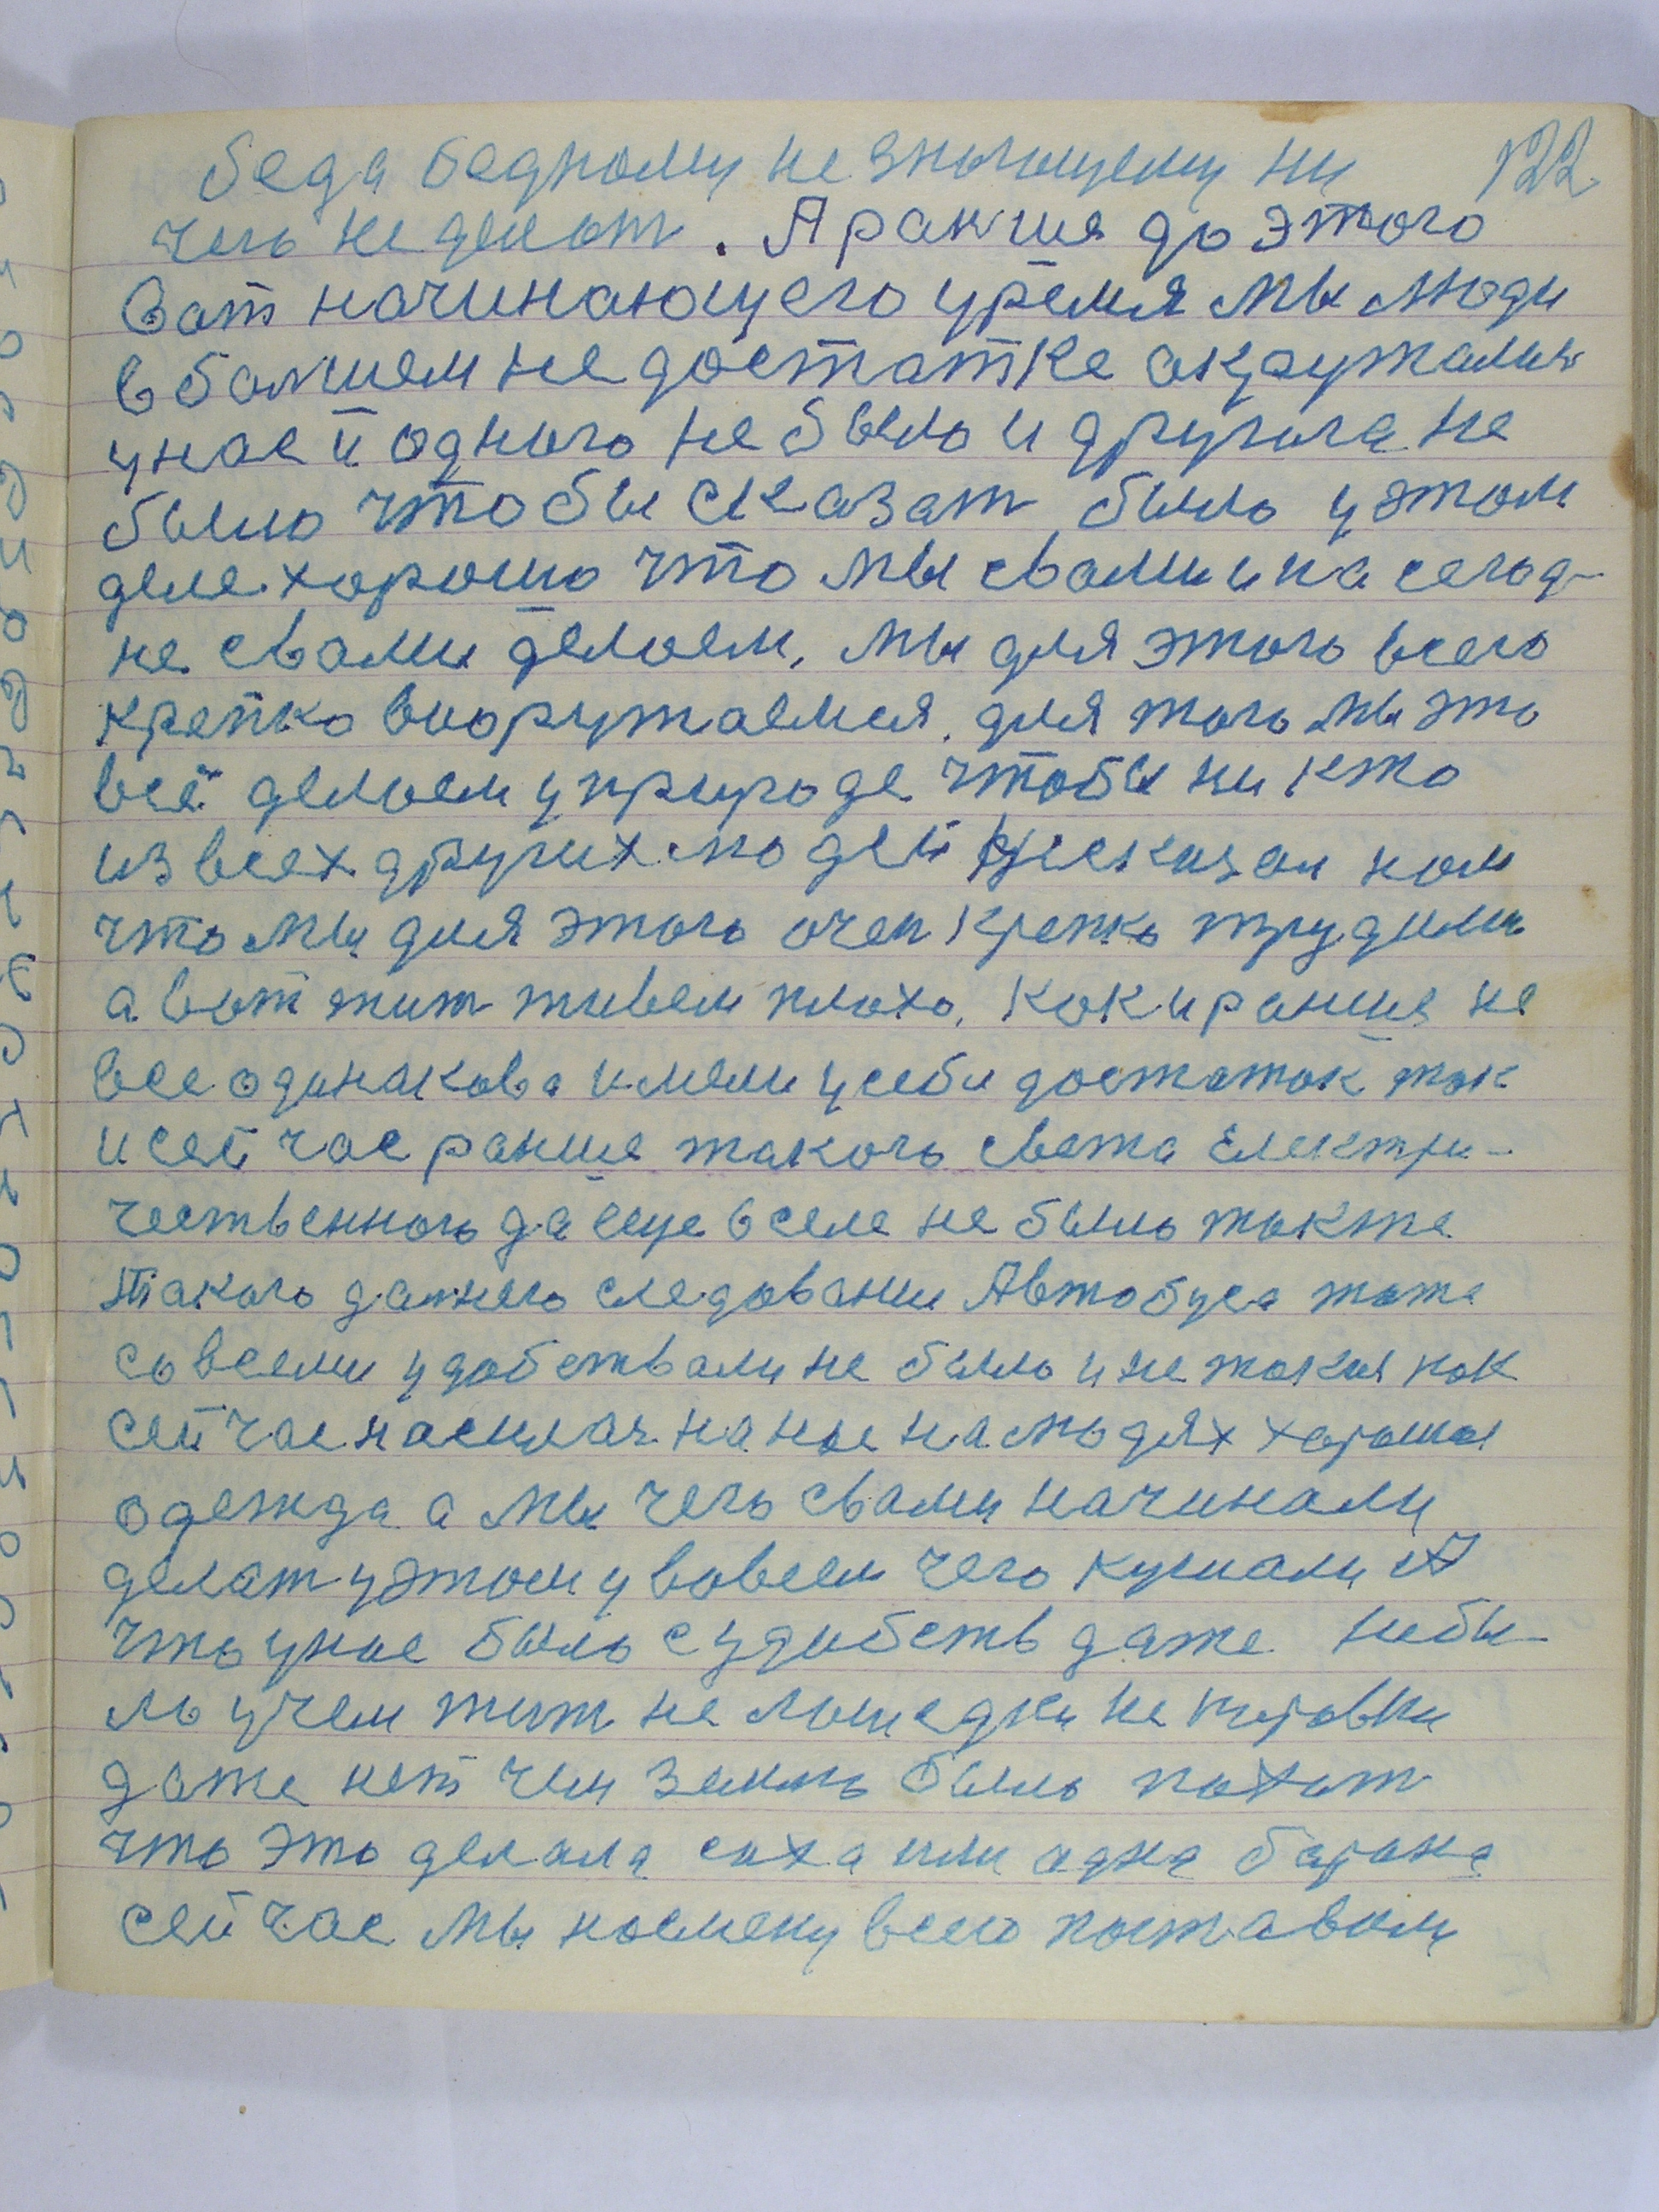 122
беда бедному не знающему ни
чего не делат. А ранше до этого
вот начинающего уремя мы люди
в болшем не достатке окружались
унас и одного не было и другога не
было что бы сказат было уэтом
деле хорошо что мы свами и на сегод-
не свами делаем, мы для этого всего
крепко вооружаемся, для того мы это
всё делаем уприроде чтобы ни кто
из всех других людей не сказал нам
что мы для этого очен крепко трудимь
а вот жит живем плохо, как и ранше не
все одинакова имели усеби достаток так
и сей час ранше такого света Електри-
чественного да еще в селе не было также
такого далнего следования Автобуса тоже
со всеми удобствами не было и не такая как
сей час носилас на нас на людях хорошая
одежда а мы чего свами начинали
делат уэтом увовсем чего кушали и
что унас было судобств даже небы-
ло учем жит не лошедки не коровки
даже нет чем землю было пахат
что это делала соха или одна борона
сей час мы носмену всего поставили